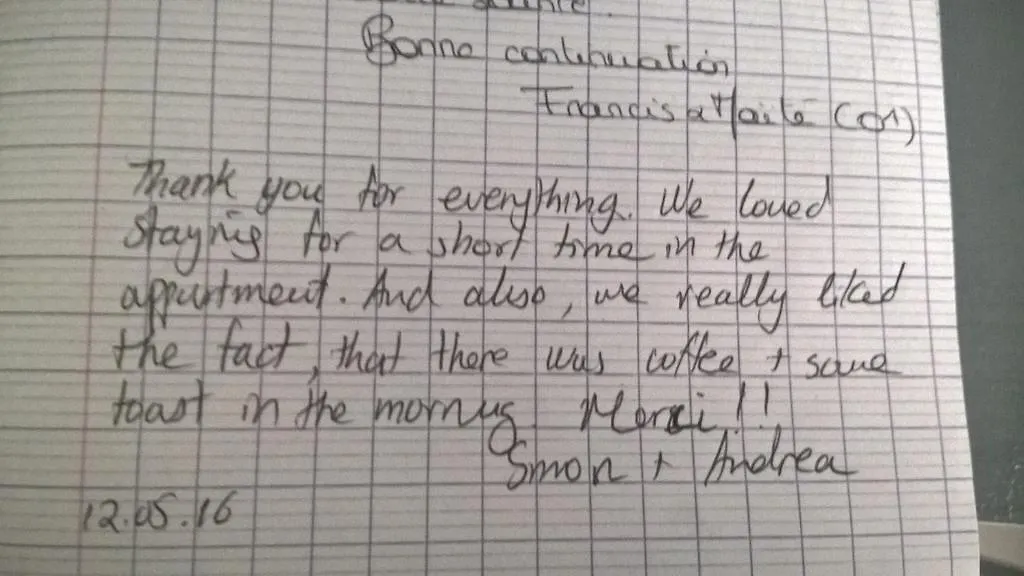 Bonne continuation
Francis et Maïté (01)
Thank you for everything. We loved
staying for a short time in the
appartment. And also, we really liked
the fact, that there was coffee + some
toast in the morning. Merci!!
Simon + Andrea
12.05.16